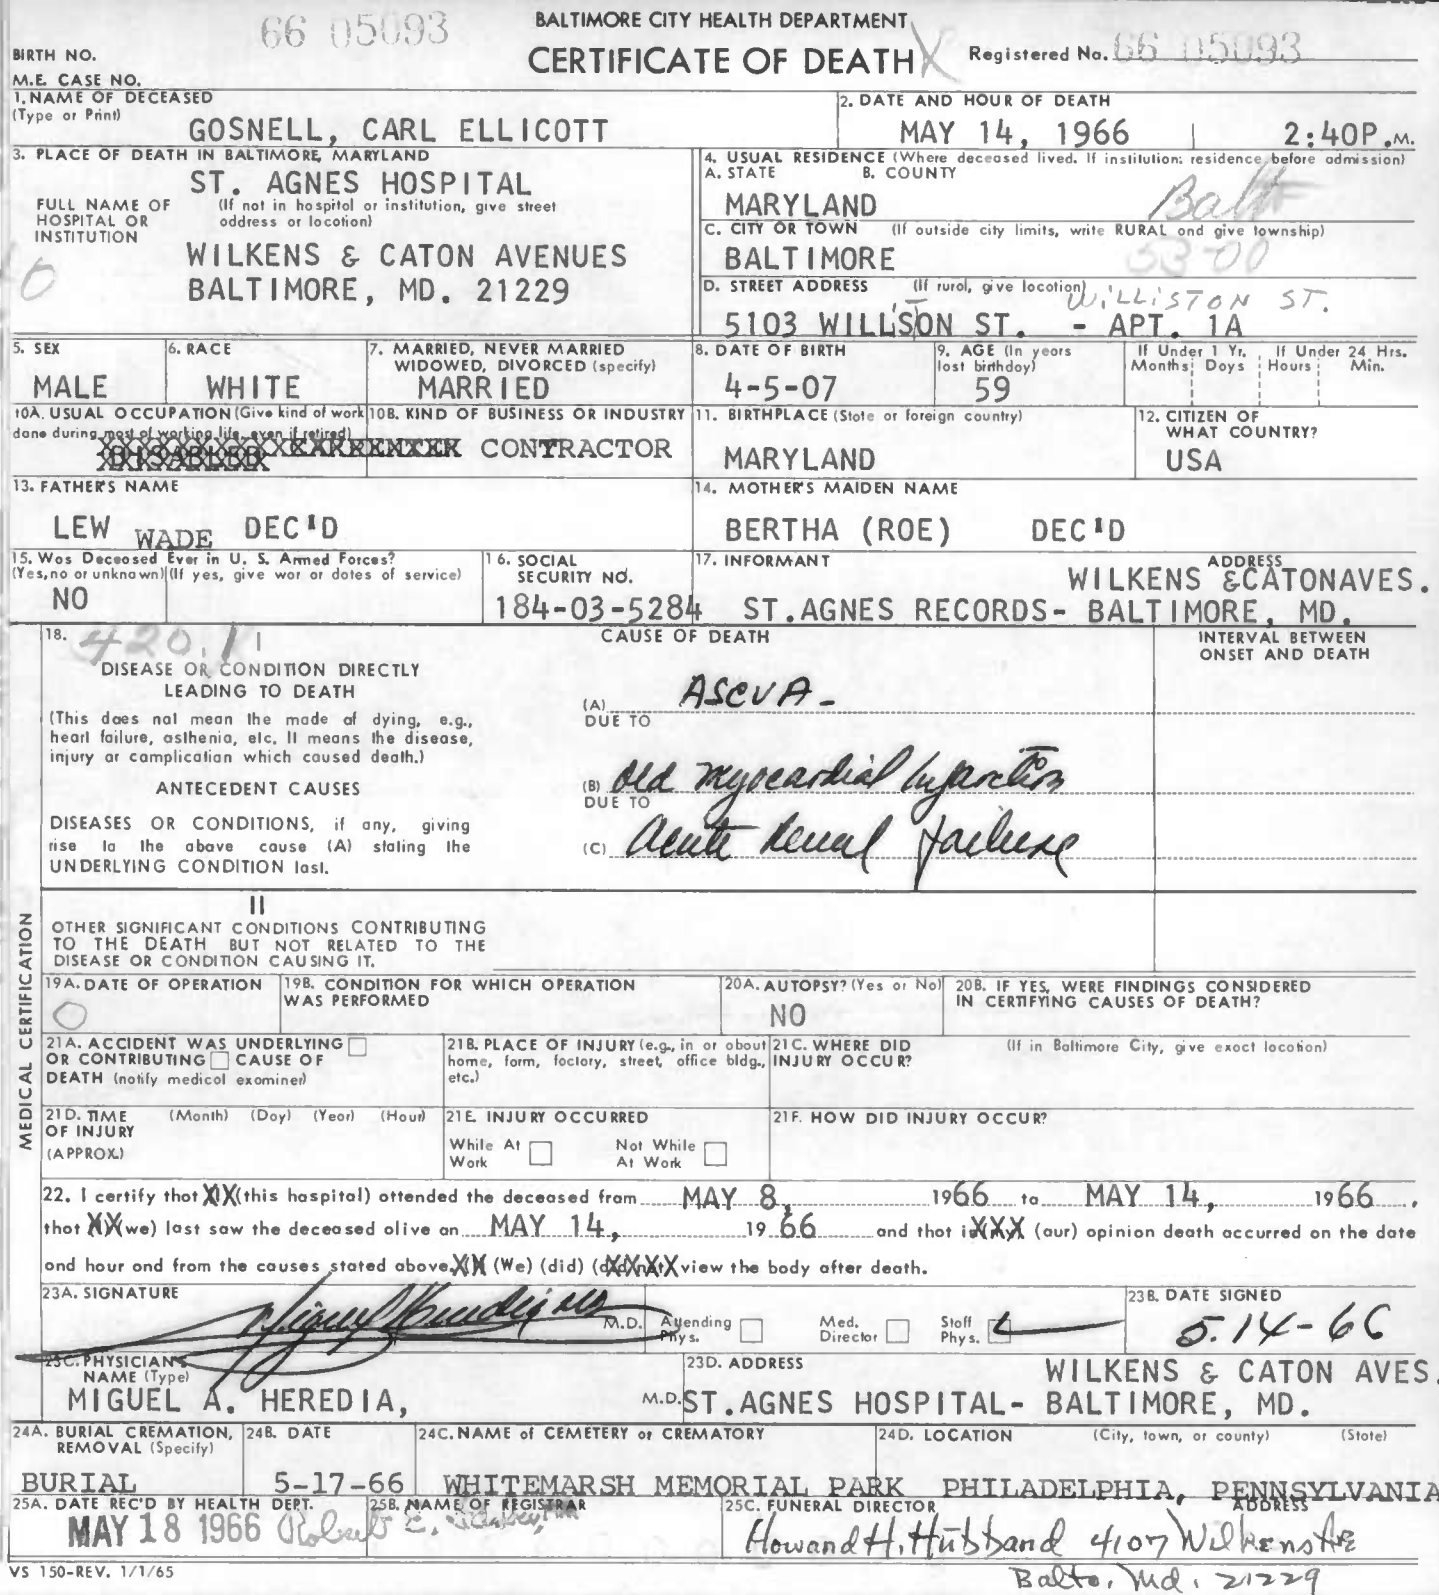 66 05093
BALTIMORE CITY HEALTH DEPARTMENT
CERTIFICATE OF DEATH
Registered No. 66 05093
BIRTH NO.
M.E. CASE NO.
1. NAME OF DECEASED
(Type or Print)
GOSNELL, CARL ELLICOTT
2. DATE AND HOUR OF DEATH
MAY 14, 1966 2:40P.M.
3. PLACE OF DEATH IN BALTIMORE, MARYLAND
ST. AGNES HOSPITAL
FULL NAME OF HOSPITAL OR INSTITUTION
(If not in hospital or institution, give street address or location)
WILKENS & CATON AVENUES
BALTIMORE, MD. 21229
4. USUAL RESIDENCE (Where deceased lived. If institution: residence before admission)
A. STATE B. COUNTY
MARYLAND Balto
C. CITY OR TOWN (If outside city limits, write RURAL and give township)
BALTIMORE 53-00
D. STREET ADDRESS (If rural, give location) WILLISTON ST.
5103 WILLSON ST. - APT. 1A
5. SEX
MALE
6. RACE
WHITE
7. MARRIED, NEVER MARRIED
WIDOWED, DIVORCED (specify)
MARRIED
8. DATE OF BIRTH
4-5-07
9. AGE (In years last birthday)
59
If Under 1 Yr. If Under 24 Hrs.
Months Days Hours Min.
10A. USUAL OCCUPATION (Give kind of work
done during most of working life, even if retired)
DISABLED CARPENTER
10B. KIND OF BUSINESS OR INDUSTRY
CONTRACTOR
11. BIRTHPLACE (State or foreign country)
MARYLAND
12. CITIZEN OF
WHAT COUNTRY?
USA
13. FATHER'S NAME
LEW WADE DEC'D
14. MOTHER'S MAIDEN NAME
BERTHA (ROE) DEC'D
15. Was Deceased Ever in U. S. Armed Forces?
(Yes, no or unknown) (If yes, give war or dates of service)
NO
16. SOCIAL
SECURITY NO.
184-03-5284
17. INFORMANT ADDRESS
WILKENS &CATONAVES.
ST.AGNES RECORDS- BALTIMORE, MD.
18. 420.1
CAUSE OF DEATH
INTERVAL BETWEEN
ONSET AND DEATH
DISEASE OR CONDITION DIRECTLY
LEADING TO DEATH
(This does not mean the mode of dying, e.g.,
heart failure, asthenia, etc. It means the disease,
injury or complication which caused death.)
ANTECEDENT CAUSES
DISEASES OR CONDITIONS, if any, giving
rise to the above cause (A) stating the
UNDERLYING CONDITION last.
(A) ASCVA -
DUE TO
(B) Old myocardial Infarction
DUE TO
(C) Acute Renal failure
II
OTHER SIGNIFICANT CONDITIONS CONTRIBUTING
TO THE DEATH BUT NOT RELATED TO THE
DISEASE OR CONDITION CAUSING IT.
MEDICAL CERTIFICATION
19A. DATE OF OPERATION
19B. CONDITION FOR WHICH OPERATION
WAS PERFORMED
20A. AUTOPSY? (Yes or No)
NO
20B. IF YES, WERE FINDINGS CONSIDERED
IN CERTIFYING CAUSES OF DEATH?
21A. ACCIDENT WAS UNDERLYING
OR CONTRIBUTING CAUSE OF
DEATH (notify medical examiner)
21B. PLACE OF INJURY (e.g., in or about
home, farm, factory, street, office bldg.,
etc.)
21C. WHERE DID (If in Baltimore City, give exact location)
INJURY OCCUR?
21D. TIME (Month) (Day) (Year) (Hour)
OF INJURY
(APPROX.)
21E. INJURY OCCURRED
While At Work Not While At Work
21F. HOW DID INJURY OCCUR?
22. I certify that XIX (this hospital) attended the deceased from MAY 8, 1966 to MAY 14, 1966,
that XX we) last saw the deceased alive on MAY 14, 1966 and that in XXX (our) opinion death occurred on the date
and hour and from the causes stated above. XX (We) (did) (did not) view the body after death.
23A. SIGNATURE
Miguel Heredia M.D.
Attending Phys. Med. Director Staff Phys.
23B. DATE SIGNED
5.14-66
23C. PHYSICIAN'S
NAME (Type)
MIGUEL A. HEREDIA, M.D.
23D. ADDRESS
WILKENS & CATON AVES.
ST.AGNES HOSPITAL- BALTIMORE, MD.
24A. BURIAL CREMATION,
REMOVAL (Specify)
BURIAL
24B. DATE
5-17-66
24C. NAME of CEMETERY or CREMATORY
WHITEMARSH MEMORIAL PARK
24D. LOCATION (City, town, or county) (State)
PHILADELPHIA, PENNSYLVANIA
25A. DATE REC'D BY HEALTH DEPT.
MAY 18 1966
25B. NAME OF REGISTRAR
Robert E.
25C. FUNERAL DIRECTOR ADDRESS
Howard H. Hubbard 4107 Wilkens Ave
Balto. Md. 21229
VS 150-REV. 1/1/65